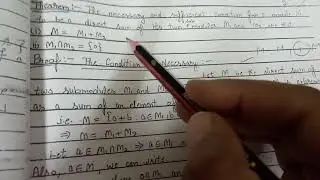 Theorem:- The necessary and sufficient condition for a module M
to be a direct sum of its two submodules M₁ and M₂ are that
(i) M = M₁ + M₂
(ii) M₁∩M₂ = {0}
Proof:- The Condition is necessary:-
two submodules M₁ and M
as a sum of an element of
i.e. M = {a+b : a∈M₁, b
⇒ M = M₁ + M₂
Let a∈M₁∩M₂ ⇒ a∈M
Also, a∈M, we can write